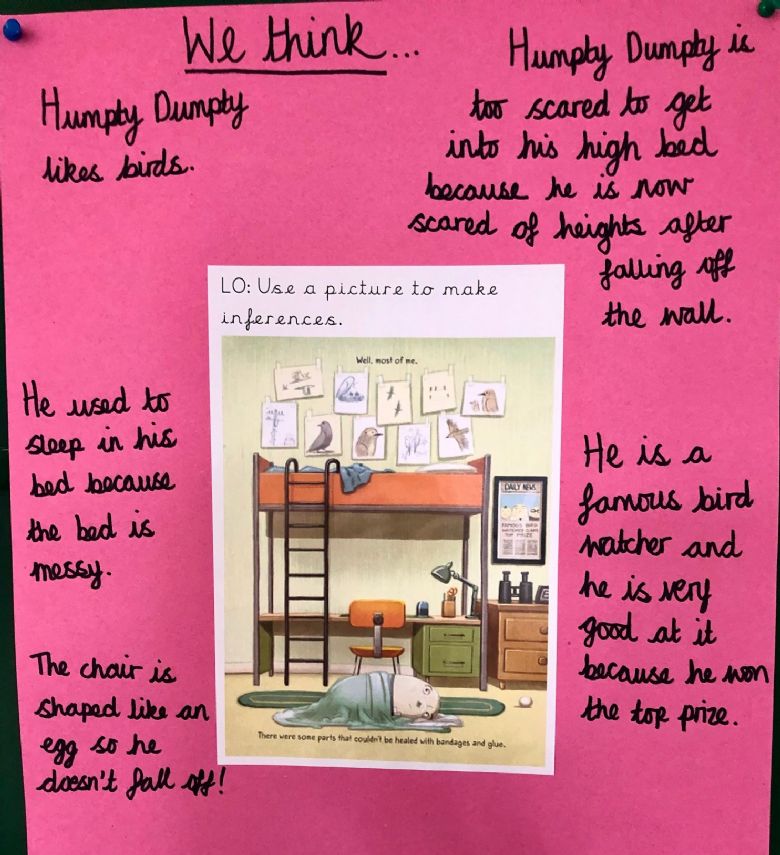 We think...
Humpty Dumpty
likes birds.
Humpty Dumpty is
too scared to get
into his high bed
because he is now
scared of heights after
falling off
the wall.
LO: Use a picture to make
inferences.
Well, most of me.
DAILY NEWS
FAMOUS BIRD
WATCHER CLAIMS
TOP PRIZE
There were some parts that couldn't be healed with bandages and glue.
He used to
sleep in his
bed because
the bed is
messy.
The chair is
shaped like an
egg so he
doesn't fall off!
He is a
famous bird
watcher and
he is very
good at it
because he won
the top prize.